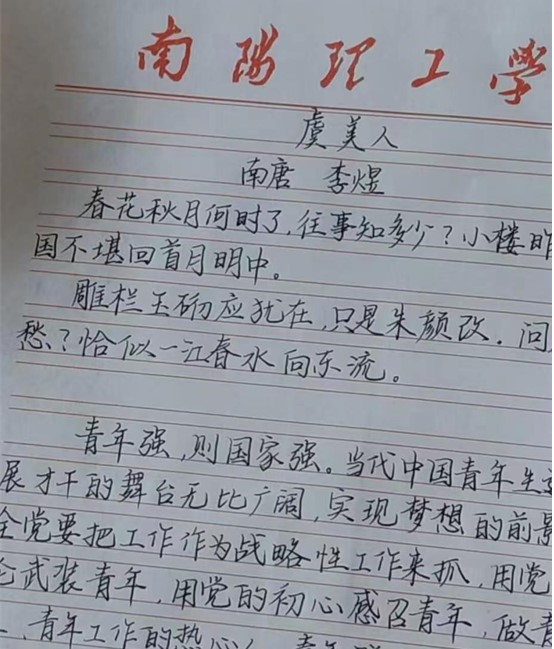 南阳理工学
虞美人
南唐 李煜
春花秋月何时了,往事知多少?小楼昨
国不堪回首月明中。
雕栏玉砌应犹在,只是朱颜改.问
愁?恰似一江春水向东流。
青年强,则国家强。当代中国青年生
展才干的舞台无比广阔,实现梦想的前景
全党要把工作作为战略性工作来抓,用党
武装青年,用党的初心感召青年,做青
青年工作的热心